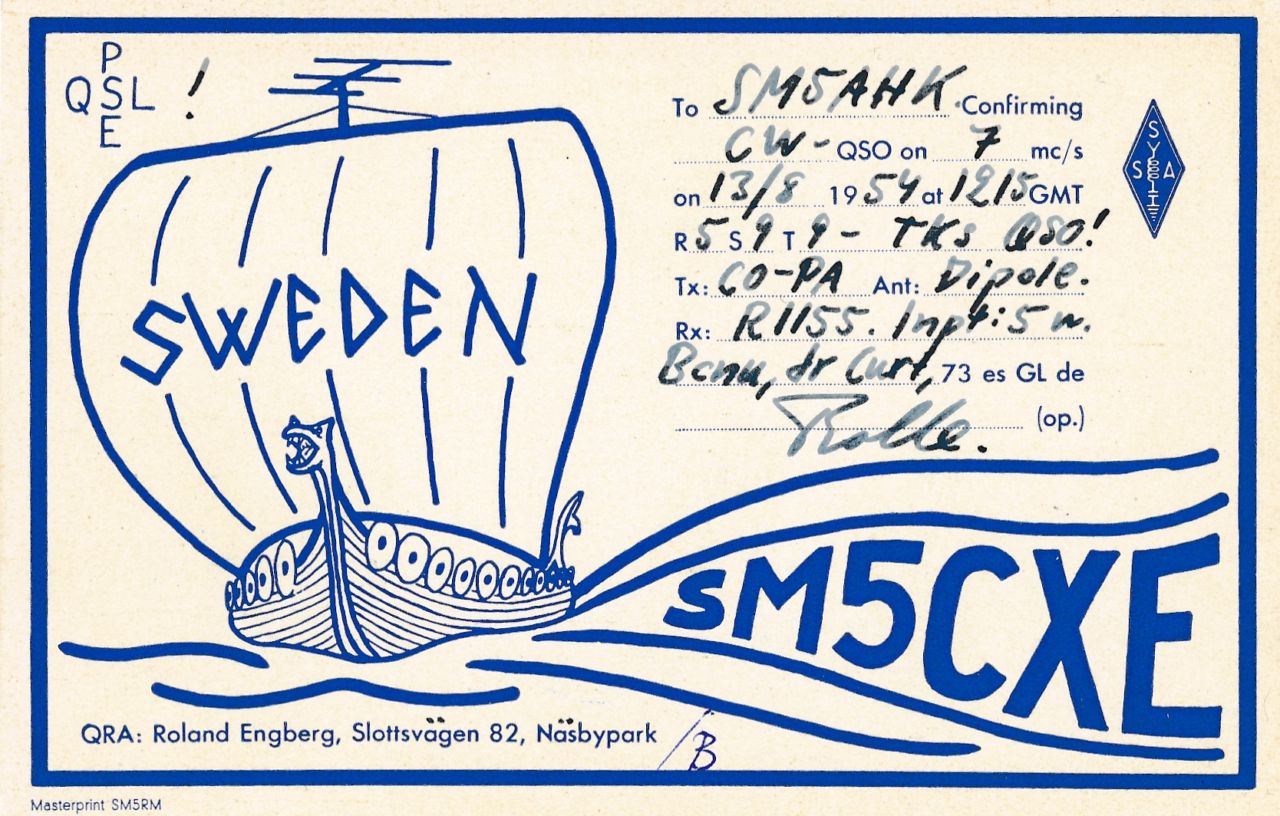 PSE
QSL !
SWEDEN
To SM5AHK. Confirming
CW- QSO on 7 mc/s
on 13/8 1954 at 1215 GMT
R 5 S 9 T 9 - TKs QSO!
Tx: CO-PA Ant: Dipole.
Rx: R1155. Inpt: 5 w.
Bcnu, dr Curt, 73 es GL de
Rolle. (op.)
SSA
SM5CXE
QRA: Roland Engberg, Slottsvägen 82, Näsbypark /B
Masterprint SM5RM